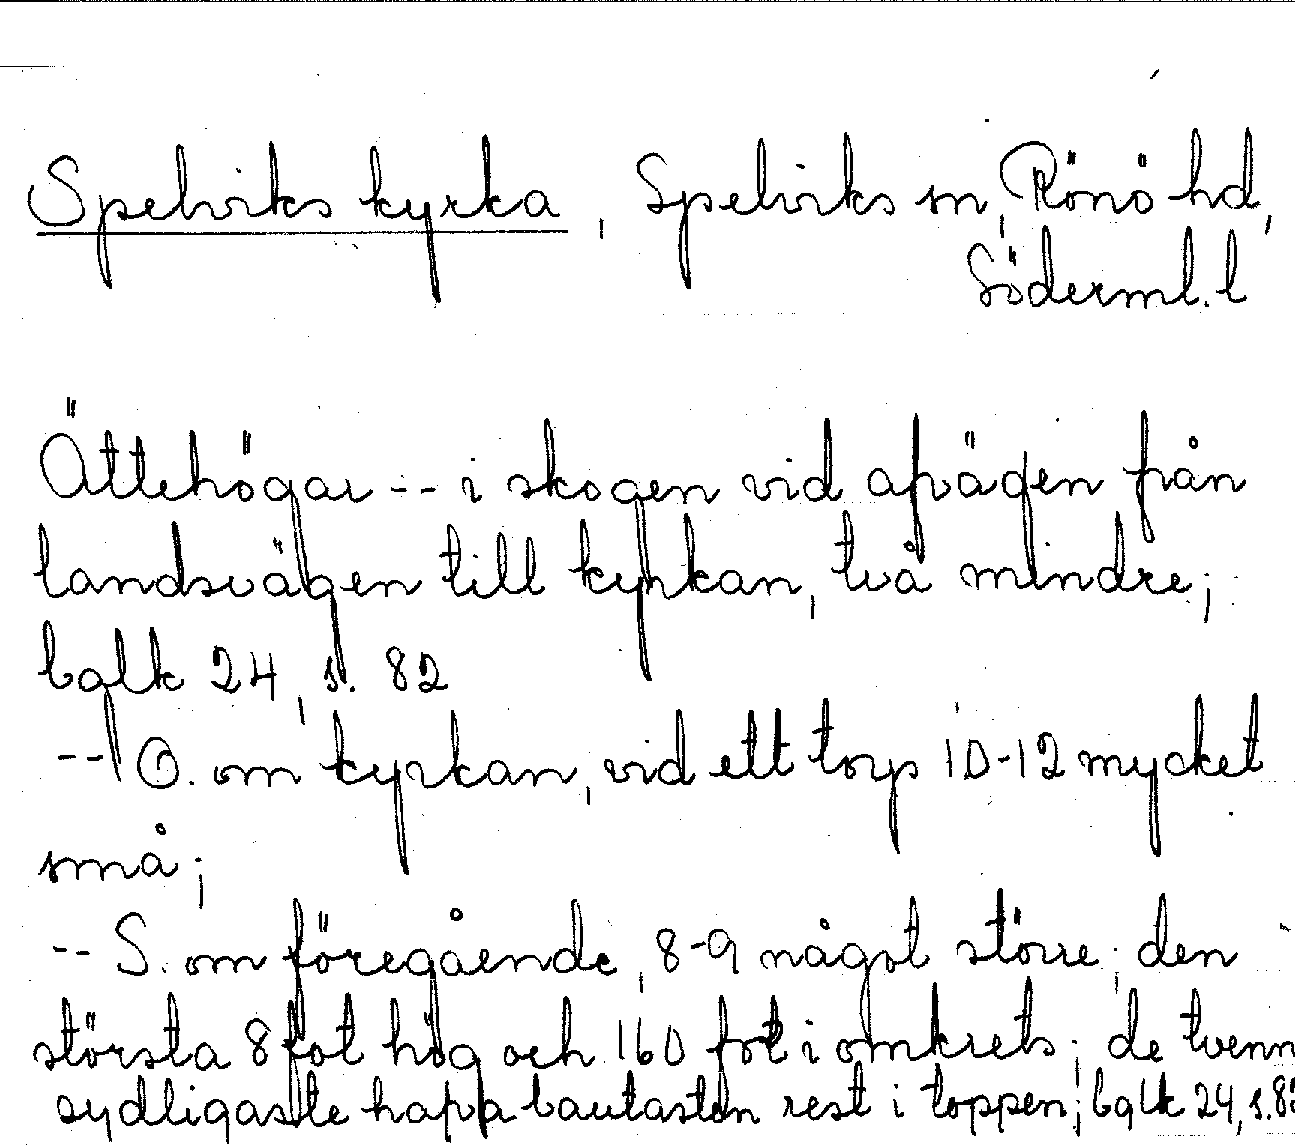 Spelviks kyrka, Spelviks sn, Rönö hd,
Söderml. l
Ättehögar -- i skogen vid afvägen från
landsvägen till kyrkan, två mindre;
bglk 24, s. 82
-- Ö. om kyrkan, vid ett torp 10-12 mycket
små;
-- S. om föregående, 8-9 något större; den
största 8 fot hög och 160 fot i omkrets; de tvenn
sydligaste hafva bautasten rest i toppen; bglk 24, s. 82